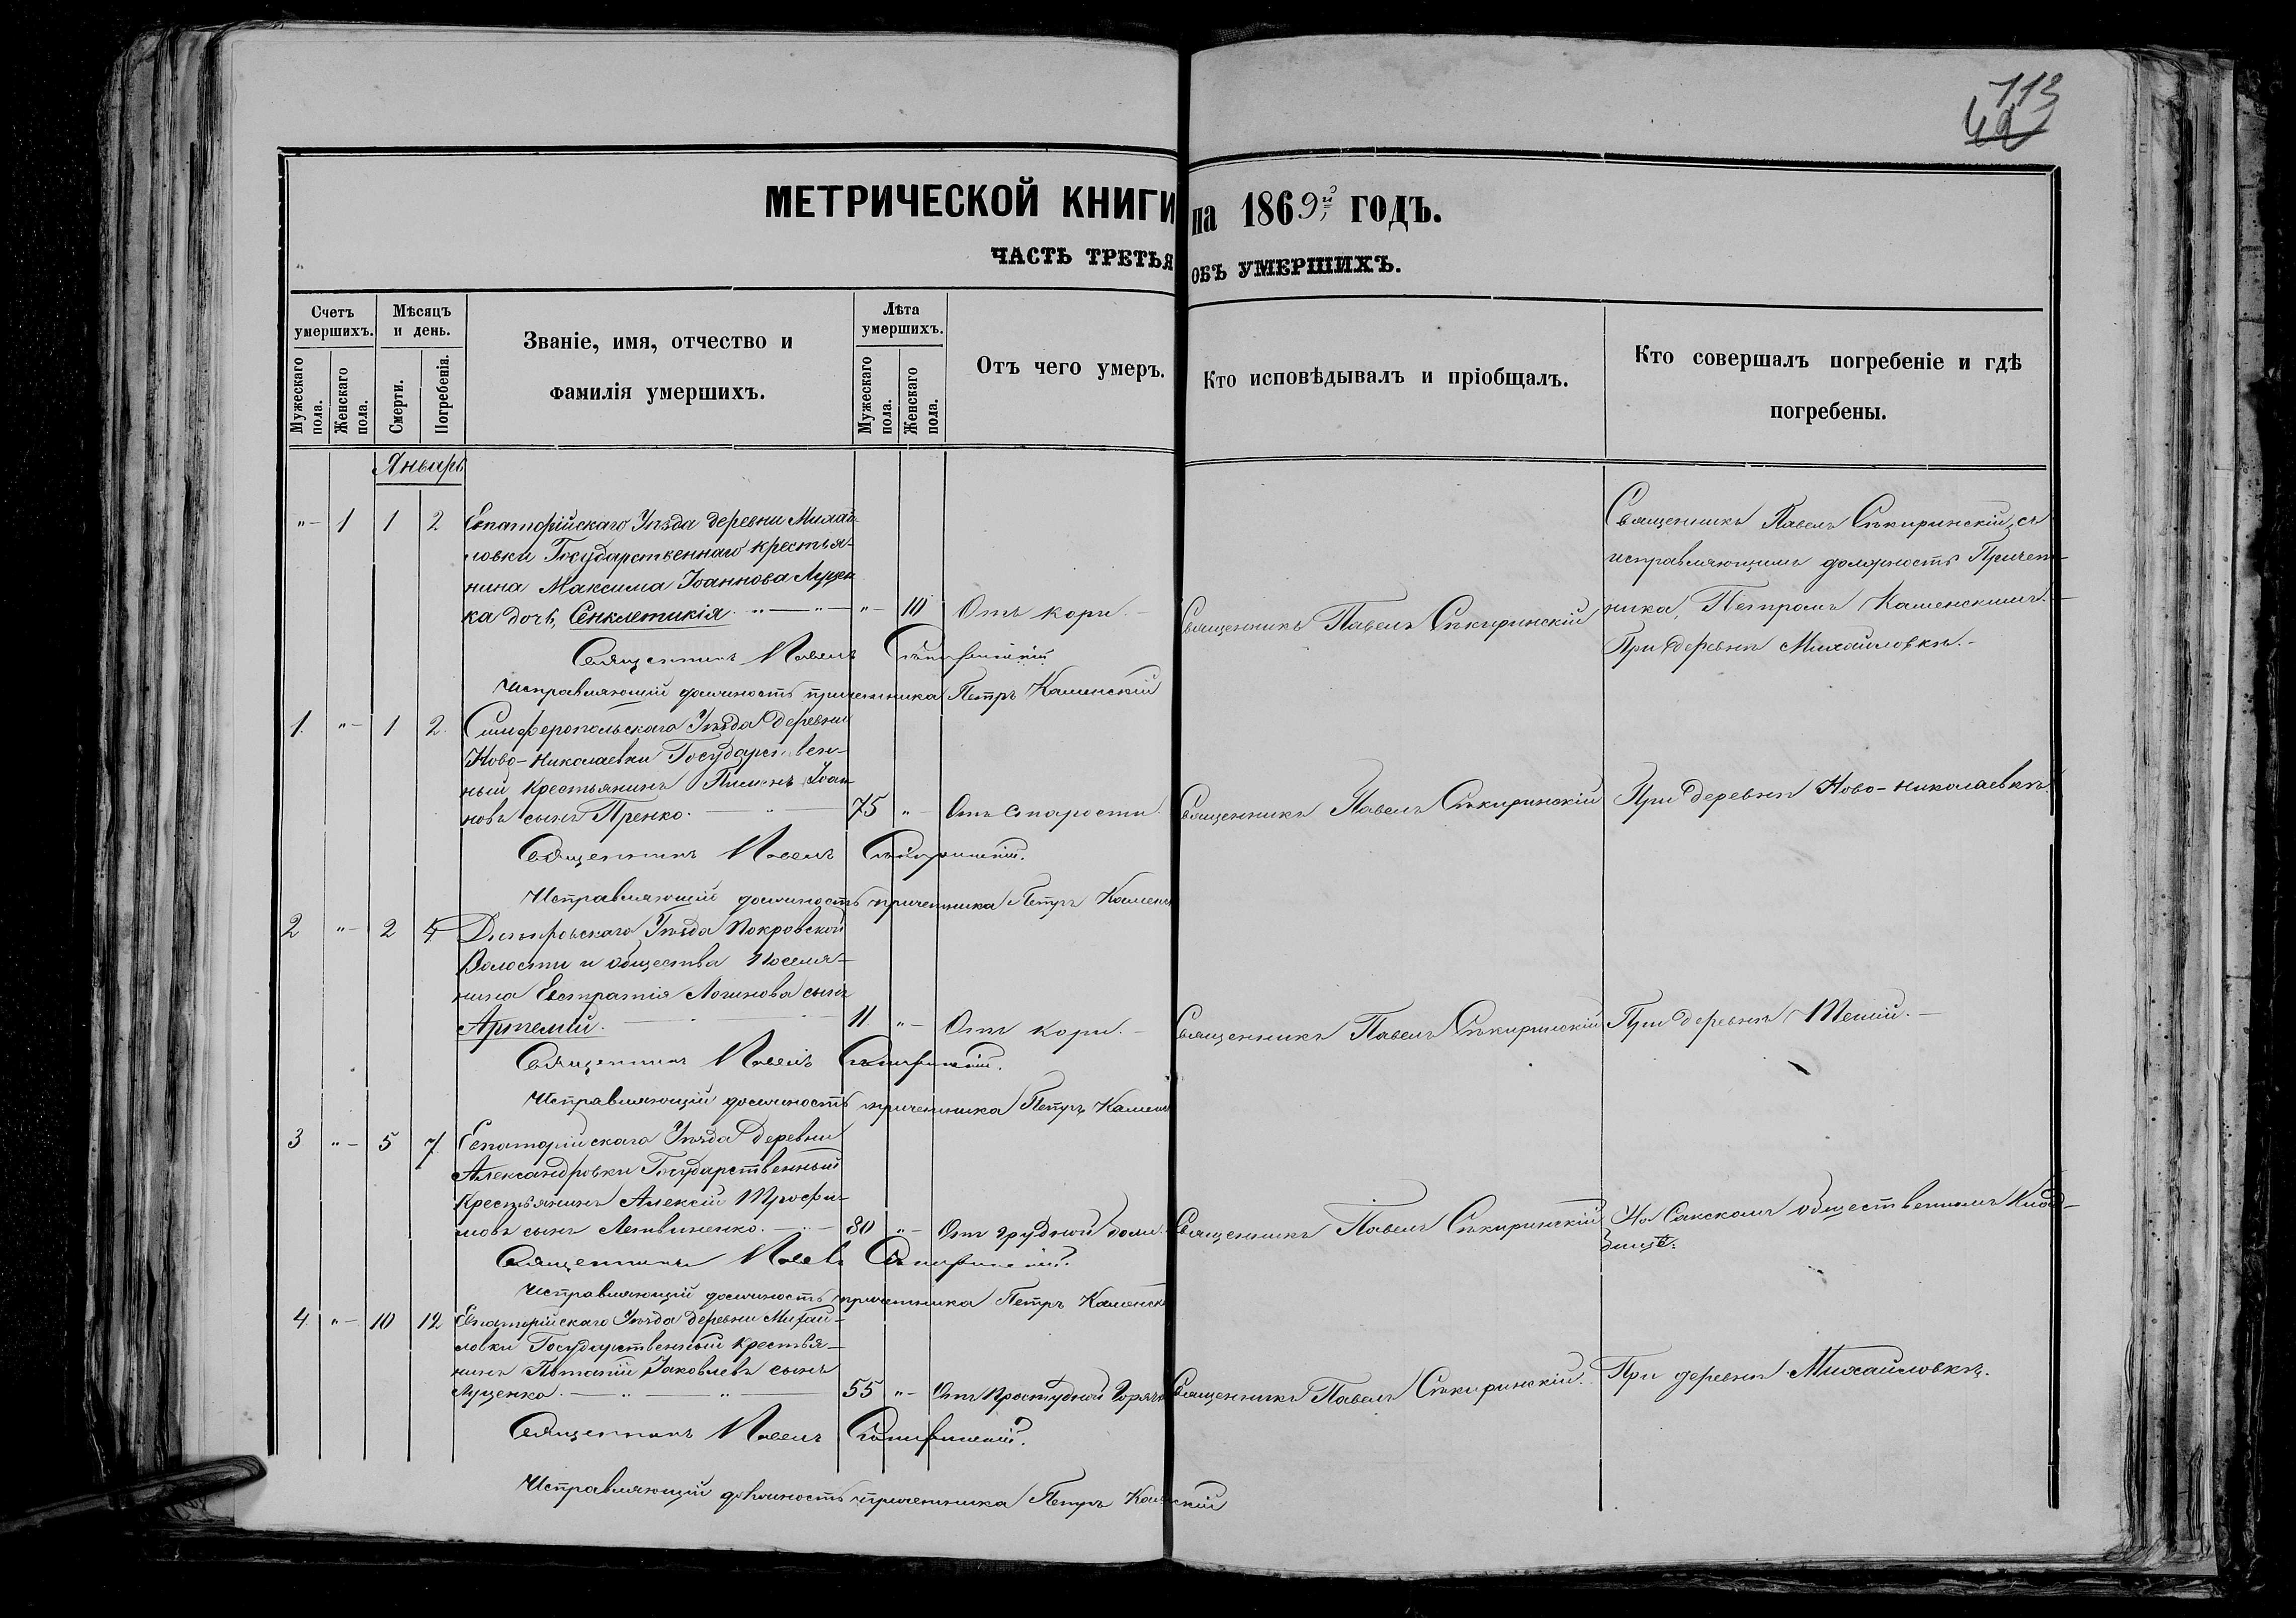 113
42
МЕТРИЧЕСКОЙ КНИГИ на 1869й ГОДЪ.
ЧАСТЬ ТРЕТЬЯ ОБЪ УМЕРШИХЪ.
Счетъ умершихъ.
Мужескаго пола.
Женскаго пола.
Мѣсяцъ и день.
Смерти.
Погребенія.
Званіе, имя, отчество и
фамилія умершихъ.
Лѣта умершихъ.
Мужескаго пола.
Женскаго пола.
Отъ чего умеръ.
Кто исповѣдывалъ и пріобщалъ.
Кто совершалъ погребеніе и гдѣ
погребены.
Январь
"— 1 1 2 Евпаторійскаго Уѣзда деревни Михай-
ловки Государственнаго крестья-
нина Максима Іоаннова Луцен
ка дочь, Сенклетикія. "—"— "— 10 Отъ кори. —
Священникъ Павелъ Сѣкиринскій
Священникъ Павелъ Сѣкиринскій, съ
исправляющимъ должность Причет-
ника, Петромъ Каменскимъ. —
При деревнѣ Михайловкѣ. -
Священникъ Павелъ Сѣкиринскій
Исправляющій должность причетника Петръ Каменскій
1. "— 1 2. Симферопольскаго Уѣзда деревни
Ново-Николаевки Государствен-
ный Крестьянинъ Пименъ Іоан
новъ сынъ Пренко. 75 "— Отъ старости.
Священникъ Павелъ Сѣкиринскій
При деревнѣ Ново-Николаевкѣ.
Священникъ Павелъ Сѣкиринскій.
Исправляющій должность причетника Петръ Каменс
2 "— 2 4 Днѣпровскаго Уѣзда Покровской
Волости и общества Поселя-
нина Евстратія Логинова сынъ
Артемій. 11 "— Отъ кори. —
Священникъ Павелъ Сѣкиринскій
При деревнѣ —
Священникъ Павелъ Сѣкиринскій.
Исправляющій должность причетника Петръ Камен
3 "— 5 7 Евпаторійскаго Уѣзда деревни
Александровки Государственный
Крестьянинъ Алексій Трофи-
мовъ сынъ Летвиненко. 80 "— Отъ грудной боли.
Священникъ Павелъ Сѣкиринскій
На Сакскомъ общественномъ Клад-
бищѣ.
Священникъ Павелъ Сѣкиринскій.
Исправляющій должность причетника Петръ Каменск
4. "— 10 12 Евпаторійскаго Уѣзда деревни Михай-
ловки Государственный крестья-
нинъ Потапій Іаковлевъ сынъ
Луценко. 55 "— Отъ простудной горяч
Священникъ Павелъ Сѣкиринскій.
При деревнѣ Михайловкѣ.
Священникъ Павелъ Сѣкиринскій.
Исправляющій должность причетника Петръ Каменскій